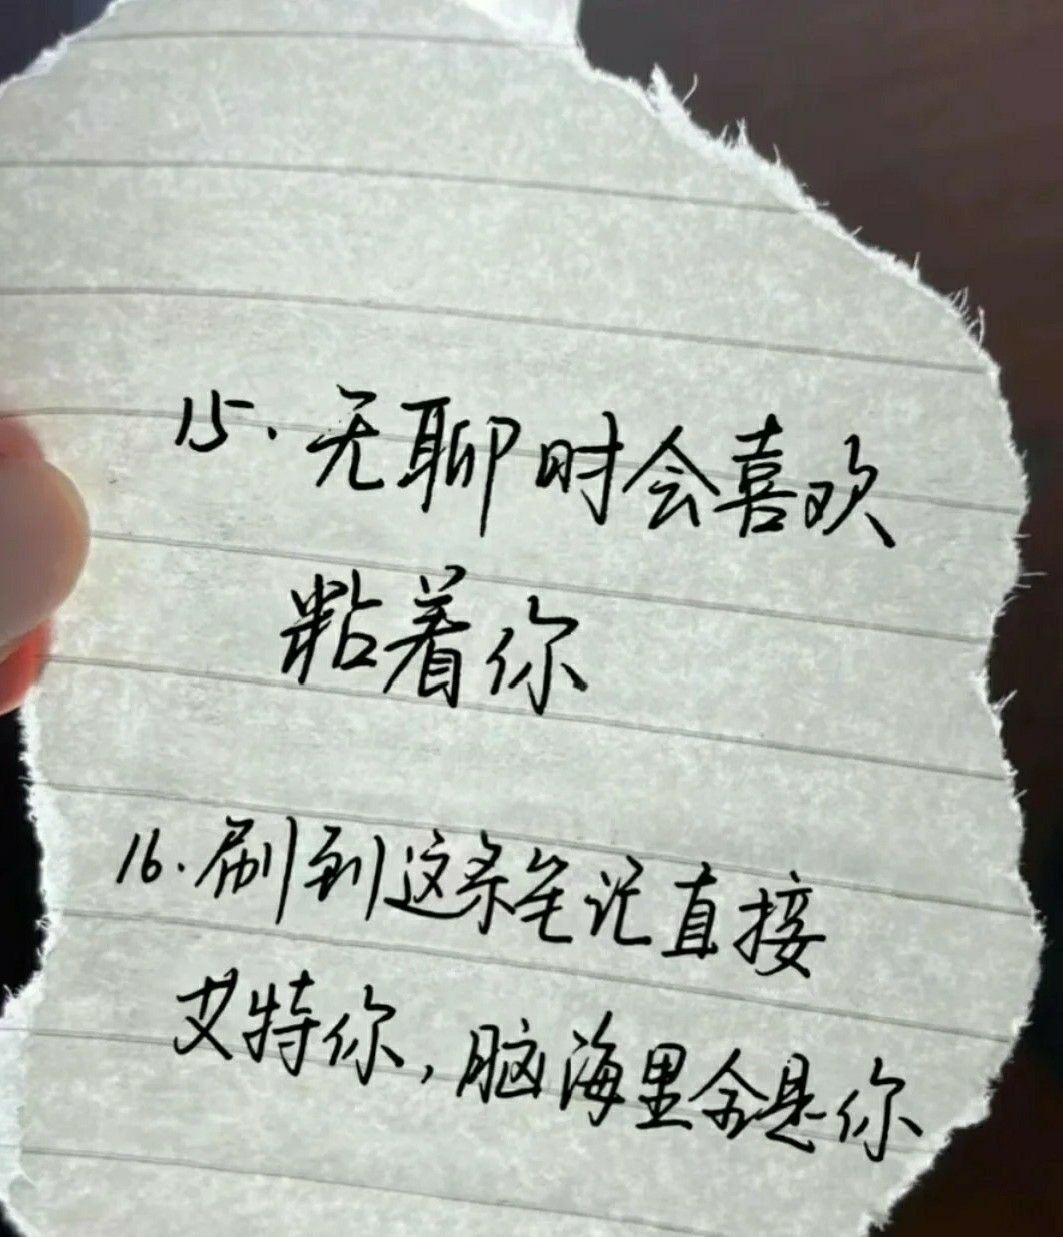 15. 无聊时会喜欢
粘着你
16. 刷到这条笔记直接
艾特你,脑海里全是你